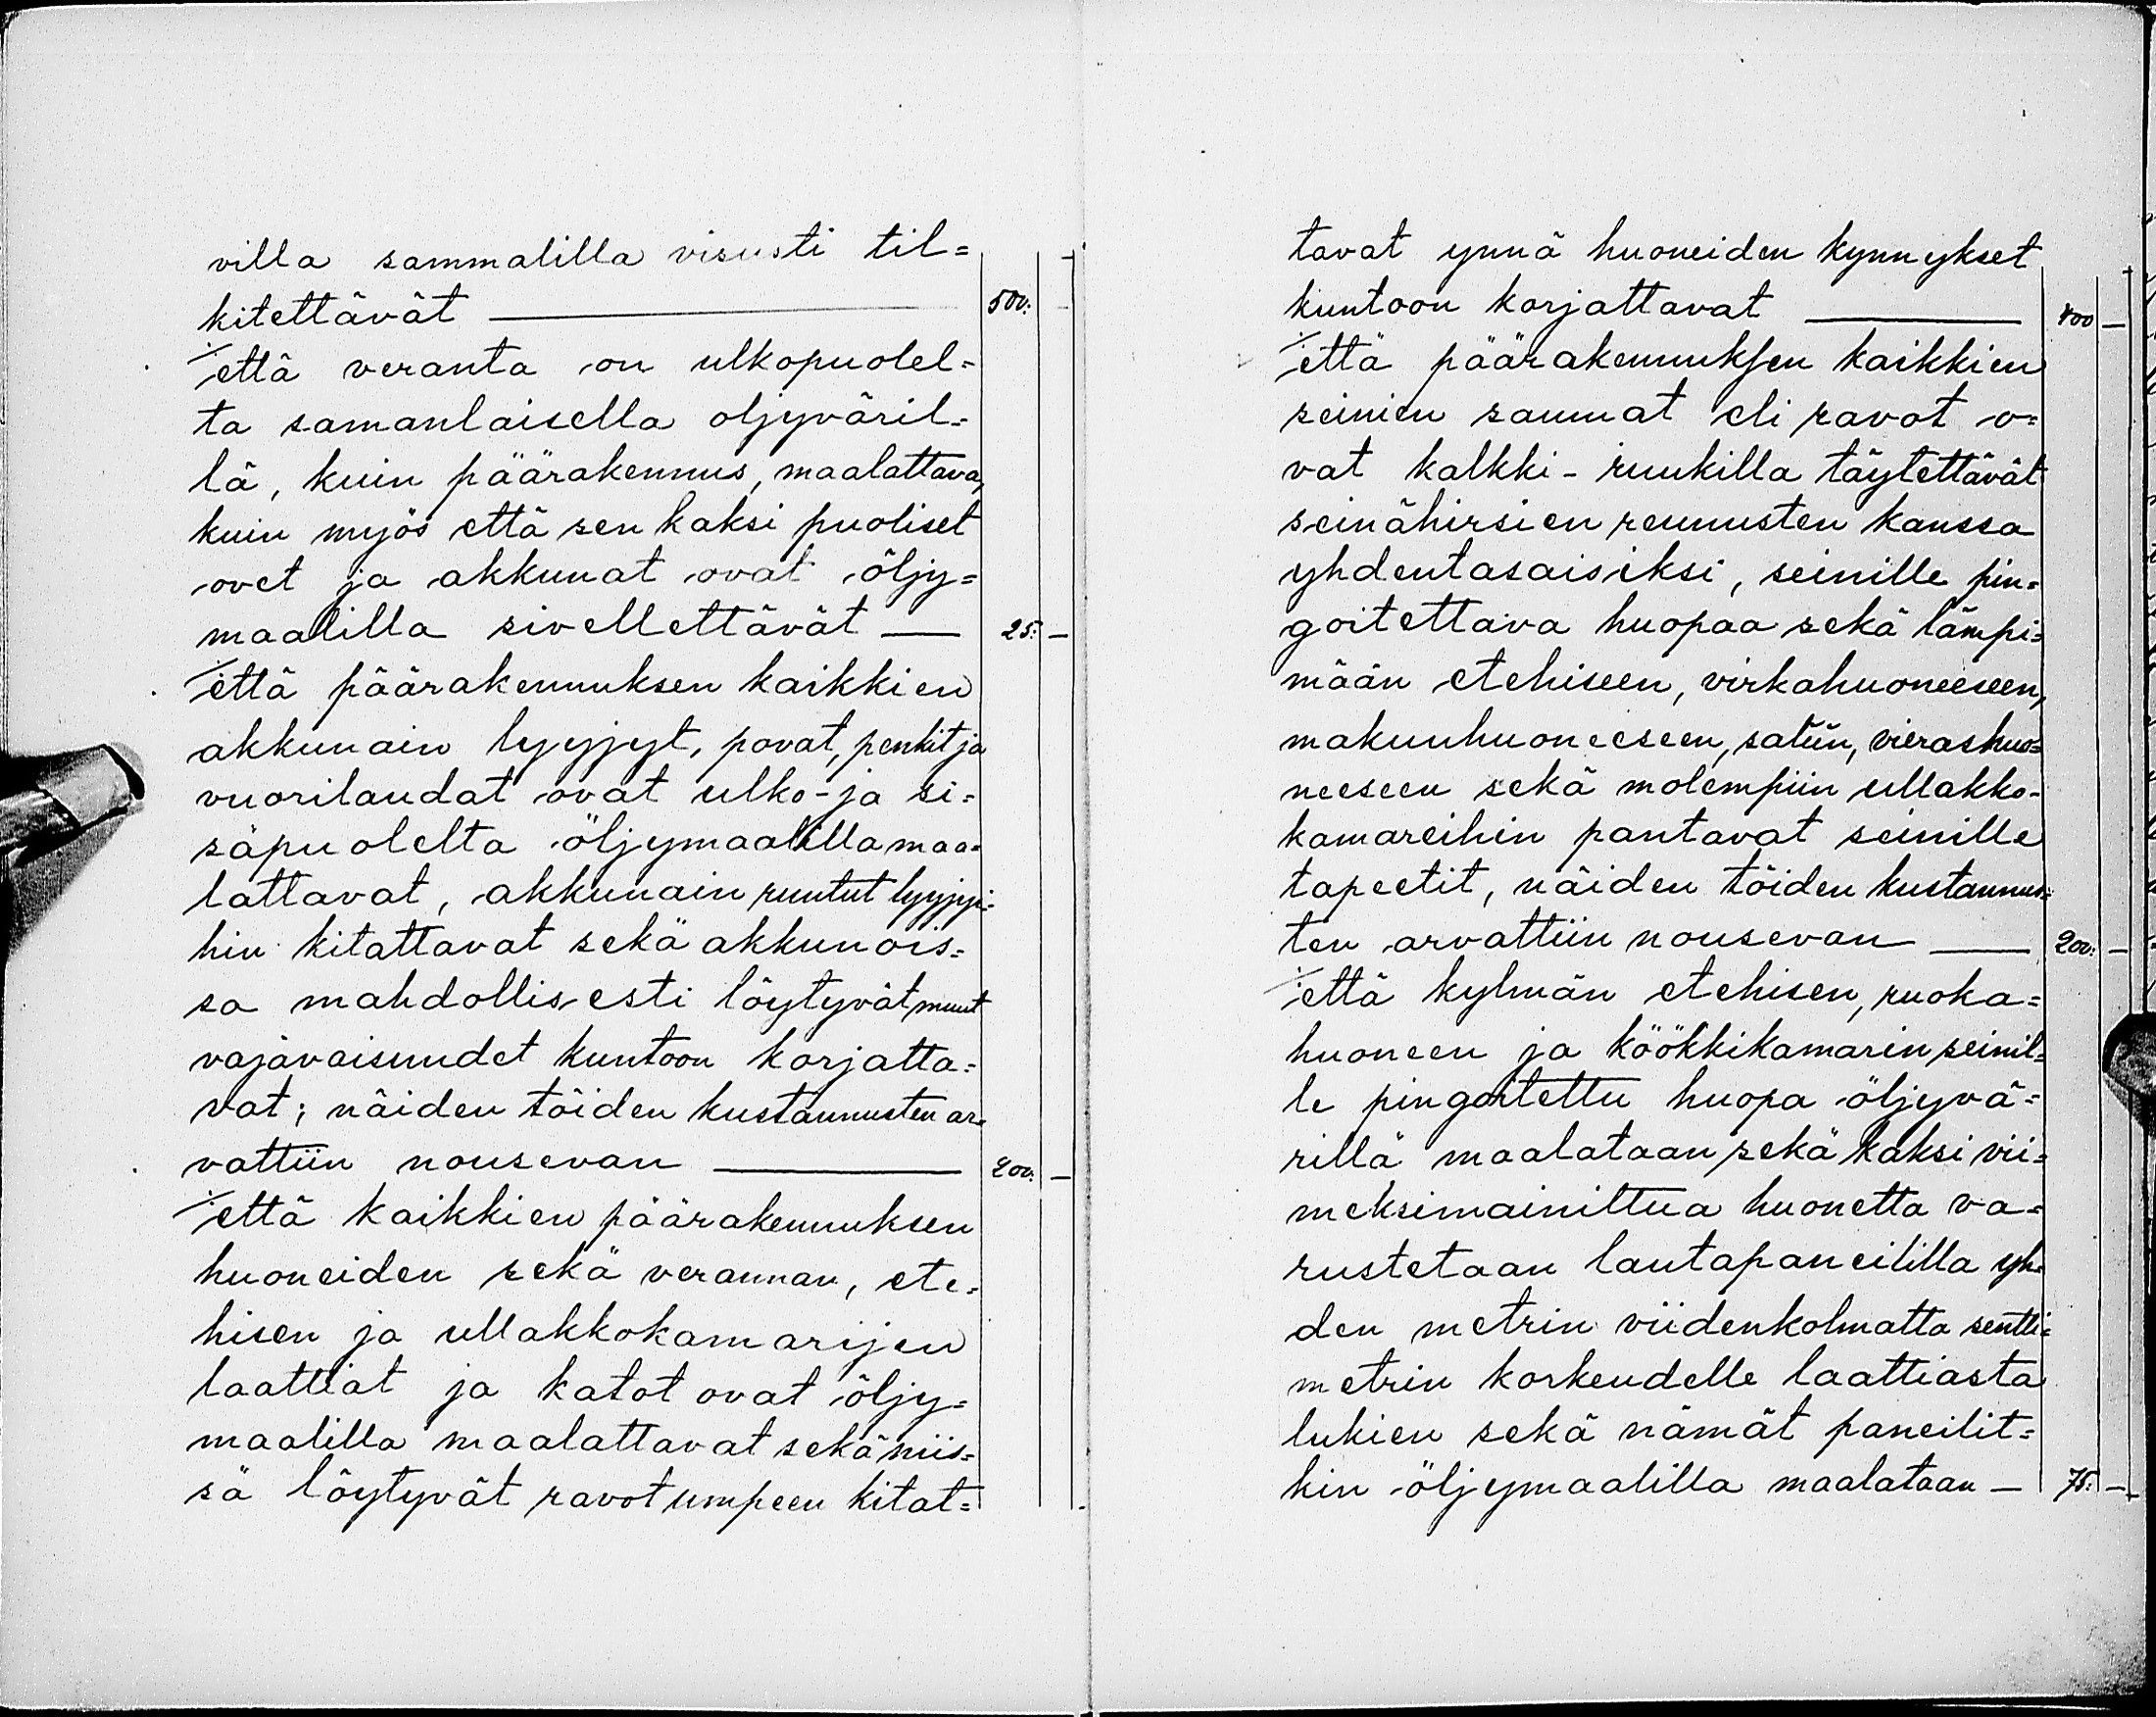 villa sammalilla visusti til=
kitettävät — 500: —
./. että veranta on ulkopuolel=
ta samanlaisella oljyväril=
lä, kuin päärakennus, maalattava,
kuin myös että sen kaksi puoliset
ovet ja akkunat ovat öljy=
maalilla sivellettävät — 25: —
./. että päärakennuksen kaikkien
akkunain lyyjyt, povat, penkit ja
vuorilaudat ovat ulko- ja si=
säpuolelta öljymaalilla maa=
lattavat, akkunain ruutut lyyjyi=
hin kitattavat sekä akkunois=
sa mahdollisesti löytyvät muut
vajavaisuudet kuntoon korjatta=
vat; näiden töiden kustannusten ar=
vattiin nousevan — 200: —
./. että kaikkien päärakennuksen
huoneiden sekä verannan, ete=
hisen ja ullakkokamarijen
laattiat ja katot ovat öljy=
maalilla maalattavat sekä niis=
sä löytyvät ravot umpeen kitat=
tavat ynnä huoneiden kynnykset
kuntoon korjattavat — 400 —
./. että päärakennuksen kaikkien
seinien saumat eli ravot o=
vat kalkki-ruukilla täytettävät
seinähirsien reunusten kanssa
yhdentasaisiksi, seinille pin=
goitettava huopaa sekä lämpi=
mään etehiseen, virkahuoneeseen,
makuuhuoneeseen, saliin, vierashuo=
neeseen sekä molempiin ullakko-
kamareihin pantavat seinille
tapeetit, näiden töiden kustannus=
ten arvattiin nousevan — 200: —
./. että kylmän etehisen, ruoka=
huoneen jaköökkikamarin seinil=
le pingoitettu huopa öljyvä=
rillä maalataan sekä kaksi vii=
meksimainittua huonetta va=
rustetaan lautapaneililla yh=
den metrin viidenkolmatta sentti=
metrin korkeudelle laattiasta
lukien sekä nämät paneilit=
kin öljymaalilla maalataan — 75: —